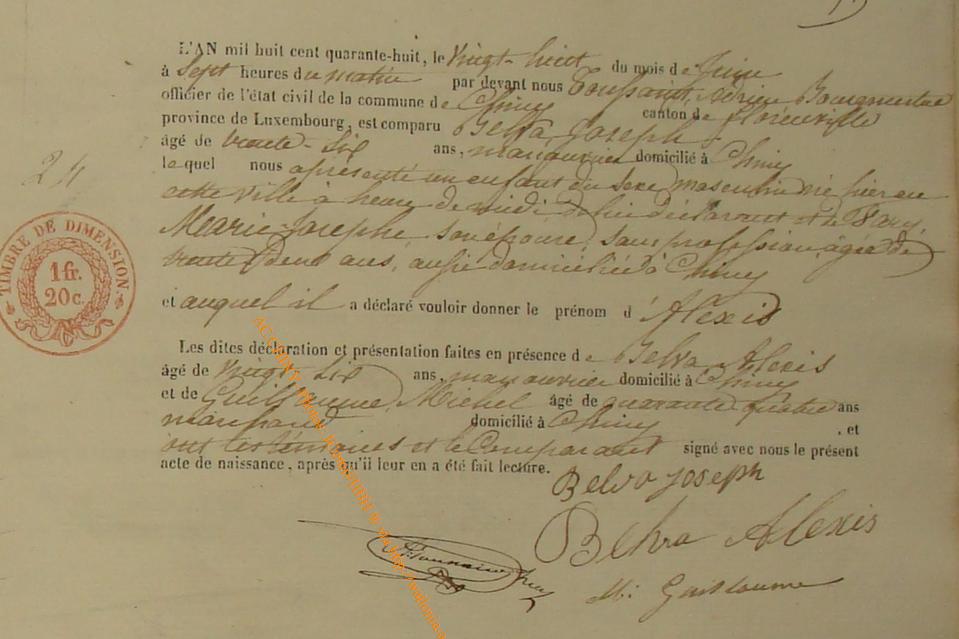 L'AN mil huit cent quarante-huit, le Vingt-huit du mois de Juin
à Sept heures du matin par devant nous Toussaint, Adrien Bourgmestre
officier de l'état civil de la commune de Chiny canton de florenville
province de Luxembourg, est comparu Belva Joseph
âgé de trente-Six ans, manouvrier domicilié à Chiny
le quel nous a présenté un enfant du Sexe masculin né hier en
cette ville à heure de midi de lui déclarant et de
Marie-Josephe, son épouse, sans profession, âgée de
trente deux ans, aussi domiciliée à Chiny
et auquel il a déclaré vouloir donner le prénom d'Alexis
Les dites déclaration et présentation faites en présence de Belva Alexis
âgé de Vingt-Six ans, manouvrier domicilié à Chiny
et de Guillaume Michel âgé de quarante quatre ans
domicilié à Chiny , et
ont les témoins et le Comparant signé avec nous le présent
acte de naissance, après qu'il leur en a été fait lecture.
Belva Joseph
Belva Alexis
M: Guillaume
24
TIMBRE DE DIMENSION
1 fr.
20 c.